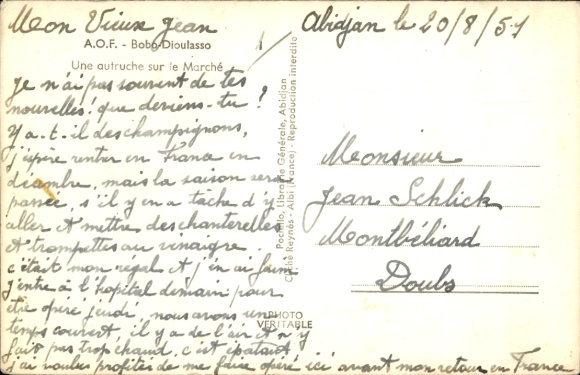 Mon Vieux Jean
A.O.F. - Bobo-Dioulasso
Une autruche sur le Marché
Je n'ai pas souvent de tes
nouvelles! que deviens-tu?
Y a-t-il des champignons,
j'espère rentrer en France en
décembre, mais la saison sera
passée, s'il y en a tâche d'y
aller et mettre des chanterelles
et trompettes au vinaigre.
c'était mon régal et j'en ai faim.
j'entre à l'hôpital demain pour
être opéré jeudi, nous avons un
temps couvert, il y a de l'air et n'y
fait pas trop chaud, c'est épatant
j'ai voulus profités de me faire opéré ici avant mon retour en France
PHOTO
VÉRITABLE
Pociello, Librairie Générale, Abidjan
Cliché Reynès - Albi (France) - Reproduction interdite
Abidjan le 20/8/51
Monsieur
Jean Schlick
Montbéliard
Doubs